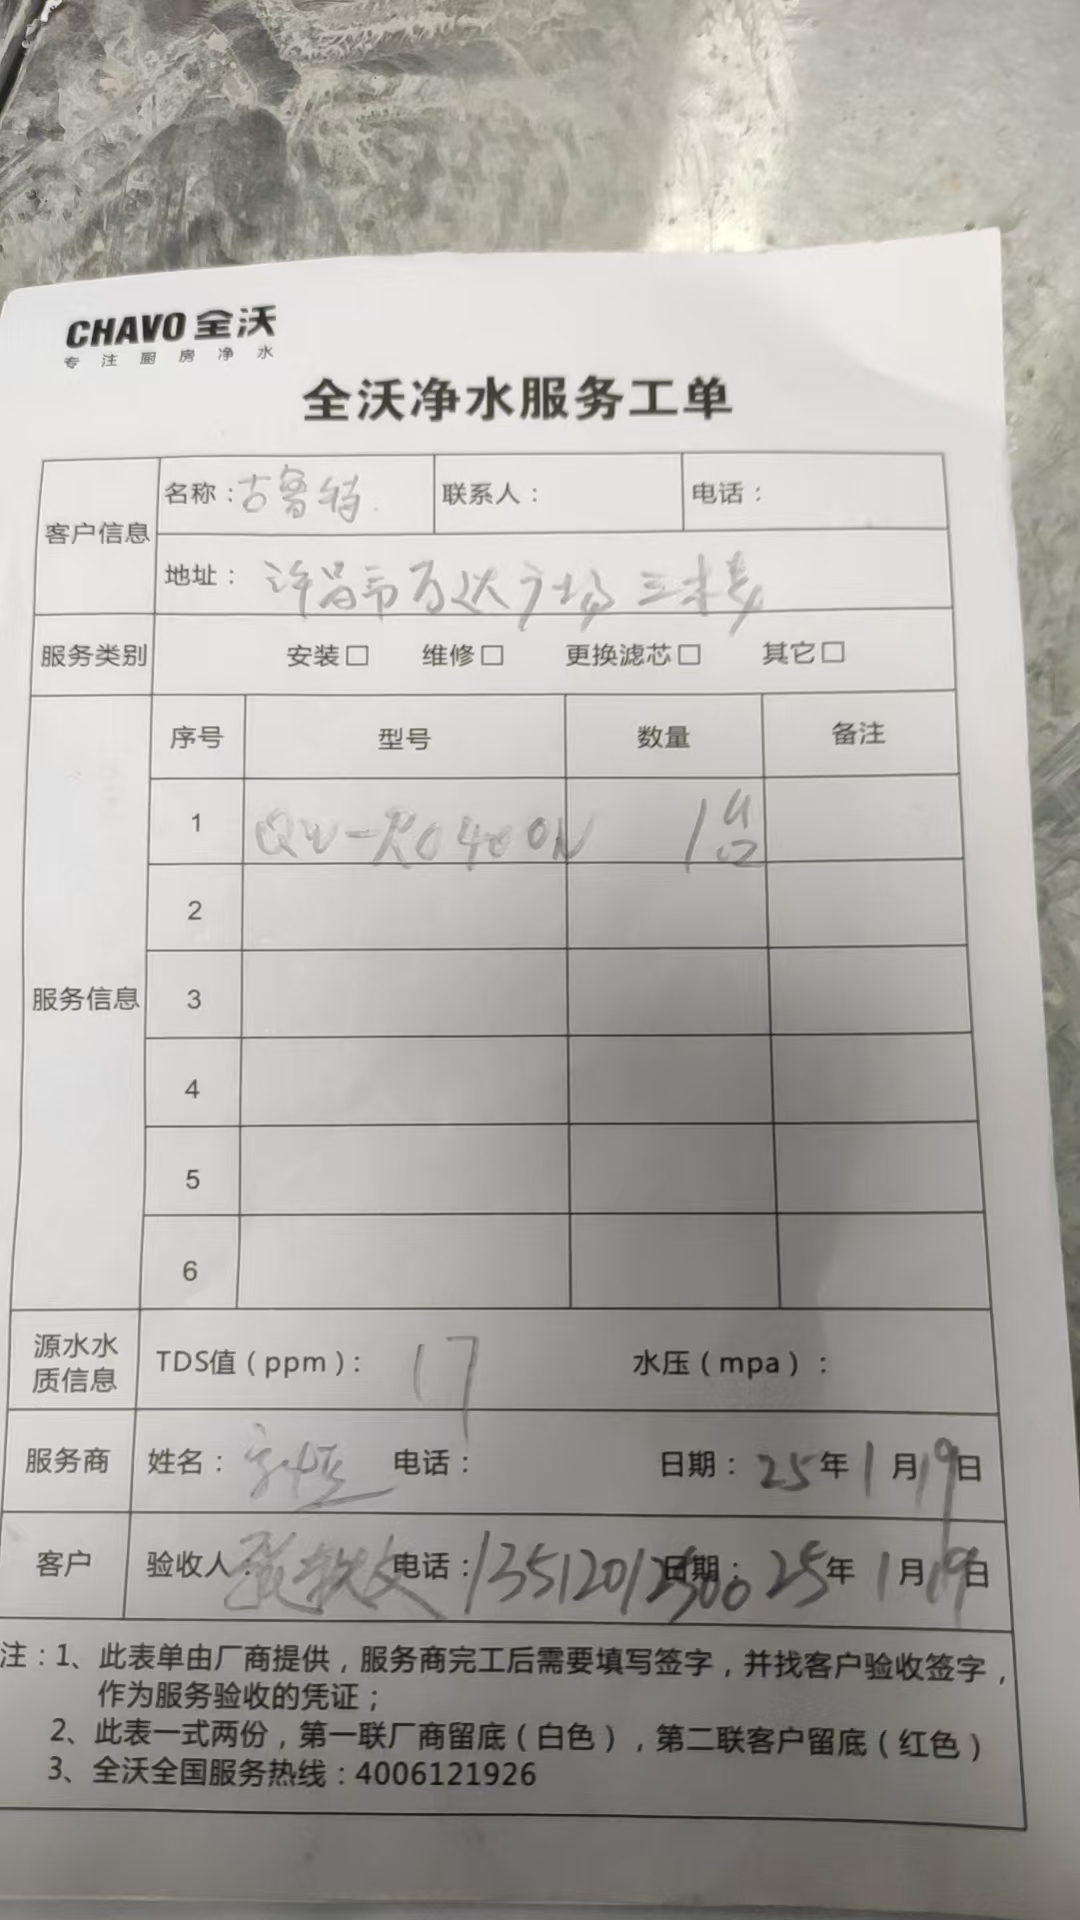 CHAVO 全沃
专注厨房净水
全沃净水服务工单
客户信息 名称：古鲁特 联系人： 电话：
地址：许昌市万达广场三楼
服务类别 安装□ 维修□ 更换滤芯□ 其它□
服务信息 序号 型号 数量 备注
1 QW-RO400N 1台
2
3
4
5
6
源水水质信息 TDS值（ppm）：17 水压（mpa）：
服务商 姓名： 电话： 日期：25年1月19日
客户 验收人： 电话：13512012500 日期：25年1月19日
注：1、此表单由厂商提供，服务商完工后需要填写签字，并找客户验收签字，
作为服务验收的凭证；
2、此表一式两份，第一联厂商留底（白色），第二联客户留底（红色）
3、全沃全国服务热线：4006121926